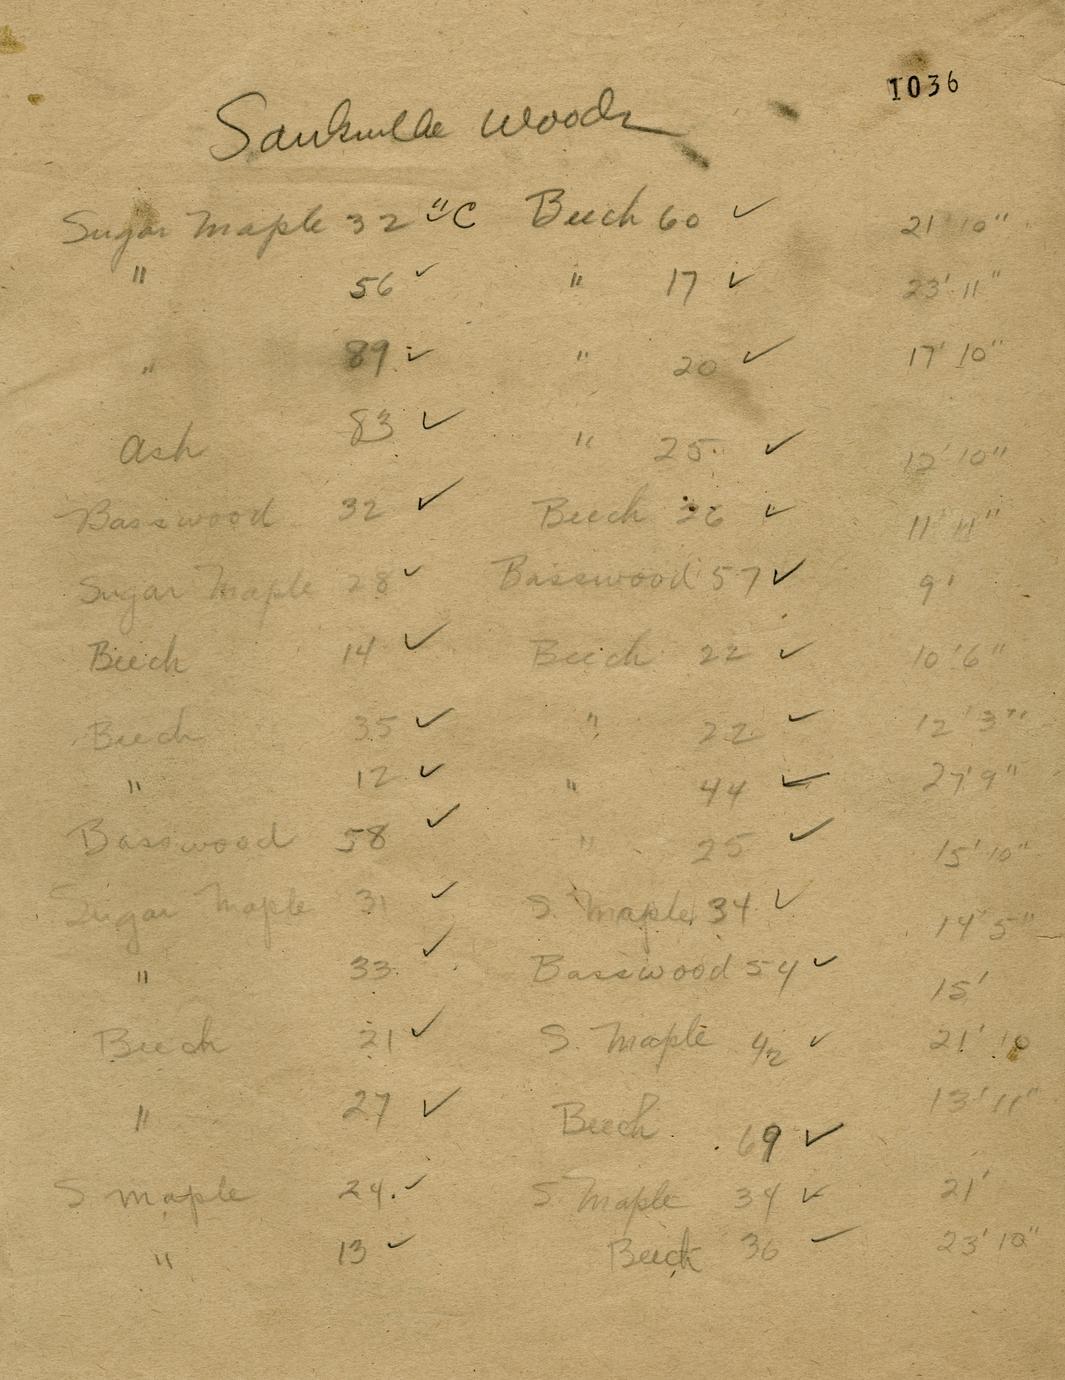 1036
Saukville Woods
Sugar Maple 32 "C Beech 60 ✓ 21' 10"
" 56 ✓ " 17 ✓ 23' 11"
" 89 ✓ " 20 ✓ 17' 10"
Ash 83 ✓ " 25 ✓ 12' 10"
Basswood 32 ✓ Beech 26 ✓ 11' 11"
Sugar Maple 28 ✓ Basswood 57 ✓ 9'
Beech 14 ✓ Beech 22 ✓ 10' 6"
Beech 35 ✓ " 22 ✓ 12' 3"
" 12 ✓ " 44 ✓ 27' 9"
Basswood 58 ✓ " 25 ✓ 15' 10"
Sugar Maple 31 ✓ S. Maple 34 ✓ 14' 5"
" 33 ✓ Basswood 54 ✓ 15'
Beech 21 ✓ S. Maple 42 ✓ 21' 10
" 27 ✓ Beech 69 ✓ 13' 11"
S maple 24 ✓ S. Maple 34 ✓ 21'
" 13 ✓ Beech 36 ✓ 23' 10"